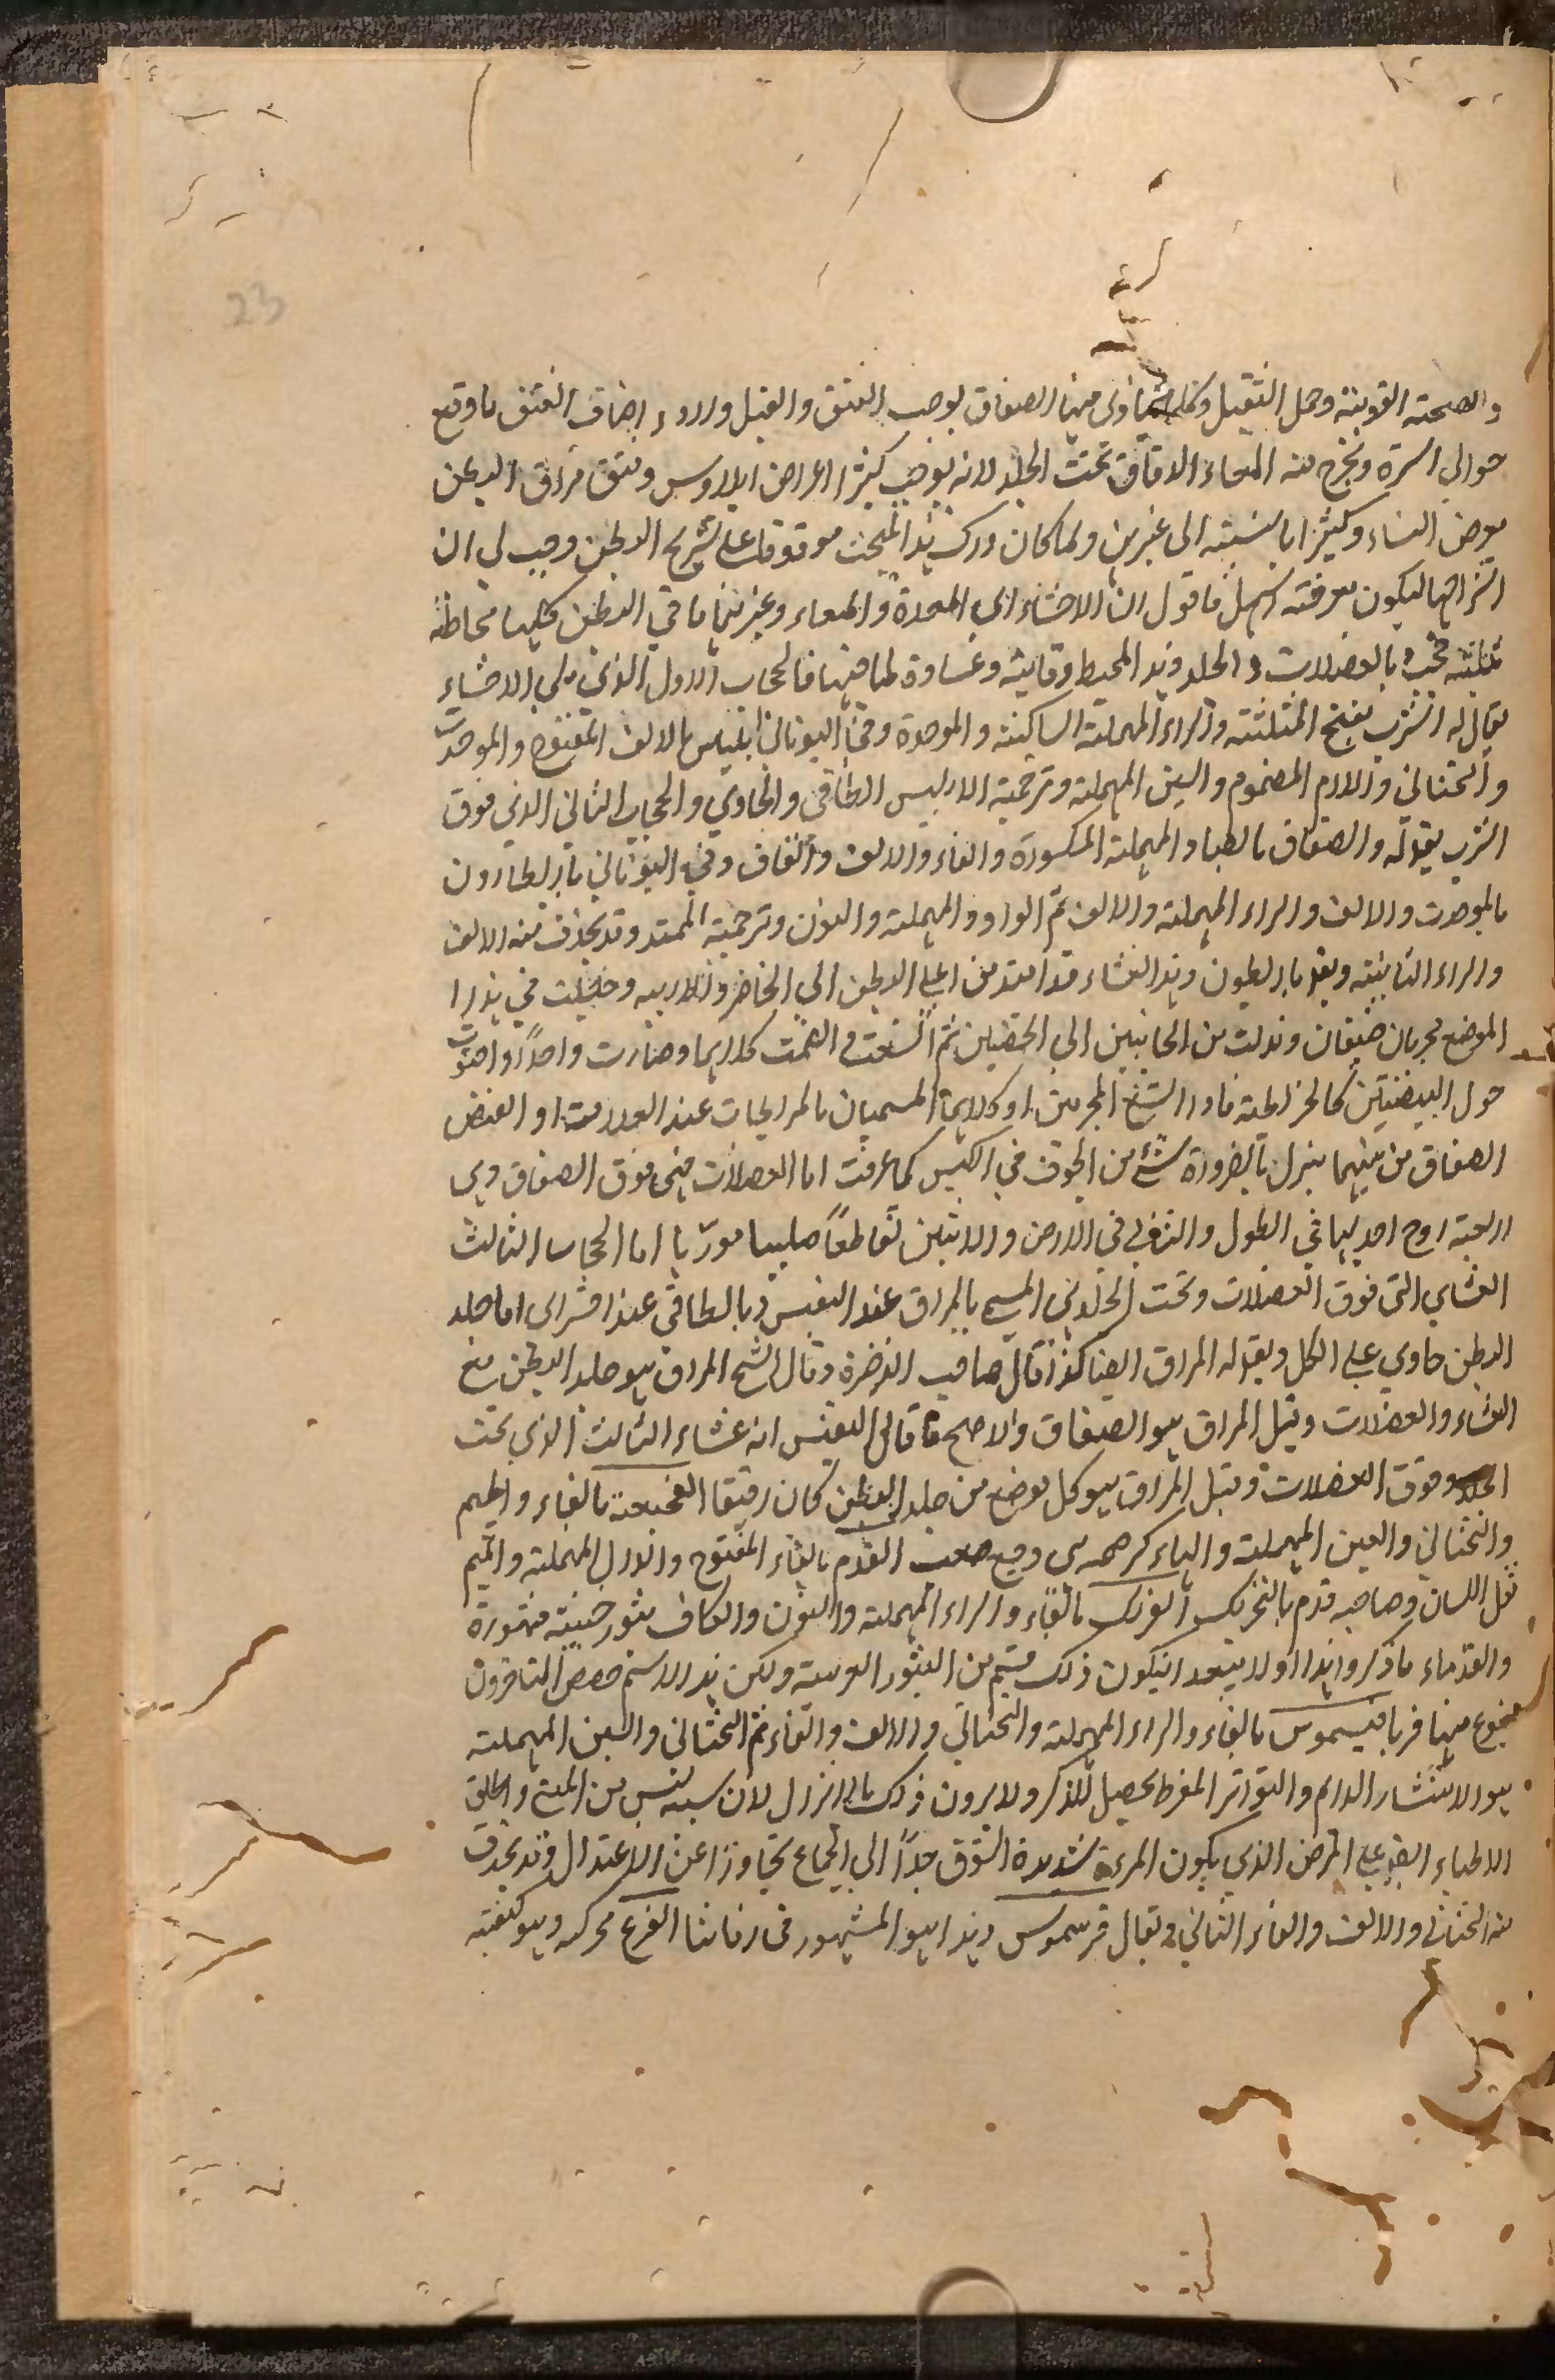 23
والصحته القوينة وحمل الثقيل وكلما يتاذى منها الصفاق يوجب الفتق والفيل واردء اصناف الفتق ما وقع
حوالي السرة وتخرج منه المعاء الدقاق تحت الجلد لانه يوجب كثيرا اعراض ايلاوس وفتق مراق البطن
يعرض النساء وكثيرا بالنسبته الى غيرهن ولما كان درك هذا المبحث موقوفا على تشريح البطن وجب لي ان
اشرحها ليكون معرفته اسهل فاقول ان الاحشاء اي المعدة والمعاء وغيرهما ما في البطن كلها محاطة
ثلثته حجب بالعضلات والجلد وهذ المحيط وقاية وغساوة لما فيها فالحجاب الاول الذي يلي الاحشاء
يقال له الثرب بفتح المثلثته والراء المهملة الساكنه والموحدة وفي اليوناني ابليس بالالف المفتوح والموحدت
والتحتاني واللام المضموم والسين المهملة وترجمته الابليس الطافي والحاوي والحجاب الثاني الذي فوق
الثرب يقوله والصفاق بالصاد المهملة المكسورة والفاء والالف والقاف وفي اليوناني باريطارون
بالموحدت والالف والراء المهملة والالف ثم الواو والمهملة والنون وترجمته الممتد وقد يحذف منه الالف
والراء الثانيته ويقو باريطون وهذ الغشاء قد امتد من اعلى البطن الى الخاصر والاربيه وحصلت في هذا
الموضع مجريان ضيقان ونزلت من الجانبين الى الخصيتين ثم اتسعت والضمت كلاهما وصارت واحدا واحتوت
حول البيضتين كالخريطة فاذا اتسع المجريين او كلاهما المسميان بالمرابحات عند العلامة او انفتق
الصفاق من بينهما ينزل بالضرورة شئ من الجوف في الكيس كما عرفت اما العضلات فهي فوق الصفاق وهي
اربعة ازوج احديها في الطول والثاني في العرض والاثنين تقاطعا صليبا موربا اما الحجاب الثالث
الغشاي التي فوق العضلات وتحت الجلد هي المسمى بالمراق عند النفيس وبالطافي عند اقشراى اما جلد
البطن حاوي على الكل ويقوله المراق ايضا كذا قال صاحب الذخيرة وقال الشيخ المراق هو جلد البطن مع
الغشاء والعضلات وقيل المراق هو الصفاق والاصح ما قال النفيس انه غشاء الثالث الذي تحت
الجلد وفوق العضلات وقيل المراق هو كل موضع من جلد البطن كان رقيقا الفجيعة بالفاء والجيم
والتحتاني والعين المهملة والهاء وجع القدم بالفاء المفتوح والدال المهملة والميم
ثقل اللسان وصاحبه فدم بالتحريك الفرنك بالفاء والراء المهملة والنون والكاف بثور خبيثة مشهورة
والقدماء ما ذكروا هذا اولا يبعد انيكون ذلك قسم من البثور الغريبة ولكن هذ الاسم خصص المتاخرون
بنوع منها فريافيسموس بالفاء والراء المهملة والتحتاني والالف والفاء ثم التحتاني والسين المهملة
هو الانتشار الدايم والتواتر المفرط يحصل للذكر ولا يرون ذلك بالانزال لان سببه ليس من المني واطلق
الاطباء ايضا على المرض الذي يكون المرءة شديدة الشوق جدا الى الجماع تجاوزا عن الاعتدال وقد يحذف
منه التحتاني والالف والفاء الثاني ويقال فرسموس وهذ هو المشهور في زماننا الفزع محركه وهو كيفية